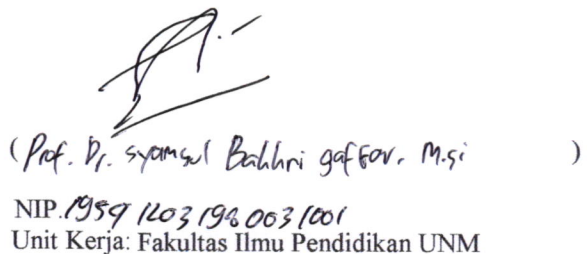 (Prof. Dr. Syamsul Bakhri gaffar, M.si )
NIP.19591203 198003 1001
Unit Kerja: Fakultas Ilmu Pendidikan UNM